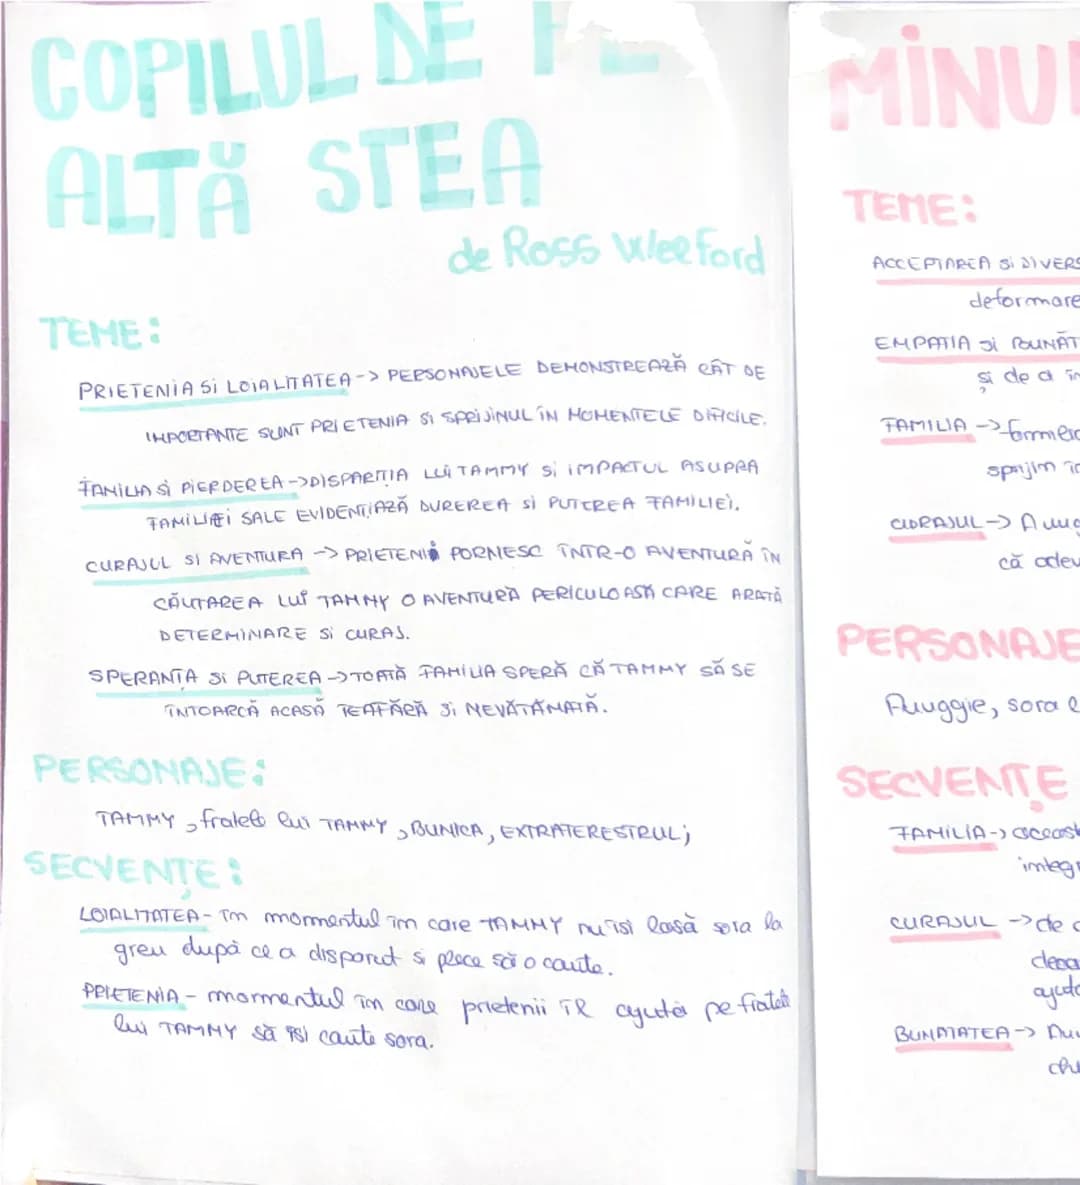 COPILUL DE PE
ALTĂ STEA
de Ross Welford
TEME:
PRIETENIA SI LOIALITATEA -> PERSONAJELE DEMONSTREAZĂ CÂT DE
IMPORTANTE SUNT PRIETENIA SI SPRIJINUL ÎN MOMENTELE DIFICILE.
FAMILIA SI PIERDEREA -> DISPARIȚIA LUI TAMMY SI IMPACTUL ASUPRA
FAMILIEI SALE EVIDENȚIAZĂ DUREREA SI PUTEREA FAMILIEI.
CURAJUL SI AVENTURA -> PRIETENII PORNESC ÎNTR-O AVENTURĂ ÎN
CĂUTAREA LUI TAMMY O AVENTURĂ PERICULOASĂ CARE ARATĂ
DETERMINARE SI CURAJ.
SPERANȚA SI PUTEREA -> TOATĂ FAMILIA SPERĂ CĂ TAMMY SĂ SE
ÎNTOARCĂ ACASĂ TEAFĂRĂ SI NEVĂTĂMATĂ.
PERSONAJE:
TAMMY, fratele lui TAMMY, BUNICA, EXTRATERESTRUL;
SECVENȚE:
LOIALITATEA - Im mormentul im care TAMMY nu isi lasă sora la
greu după ce a disparut si pleca să o caute.
PRIETENIA - mormentul îm care prietenii îl ajută pe fratele
lui TAMMY să isi caute sora.
MINU
TEME:
ACCEPTAREA SI DIVERS
deformare
EMPATIA SI BUNĂT
și de a în
FAMILIA ->
sprijin în
CURAJUL -> Aug
că adev
PERSONAJE
Auggie, sora l
SECVENȚE
FAMILIA -> aceast
integr
CURAJUL -> de
ajuta
BUNATATEA -> Au